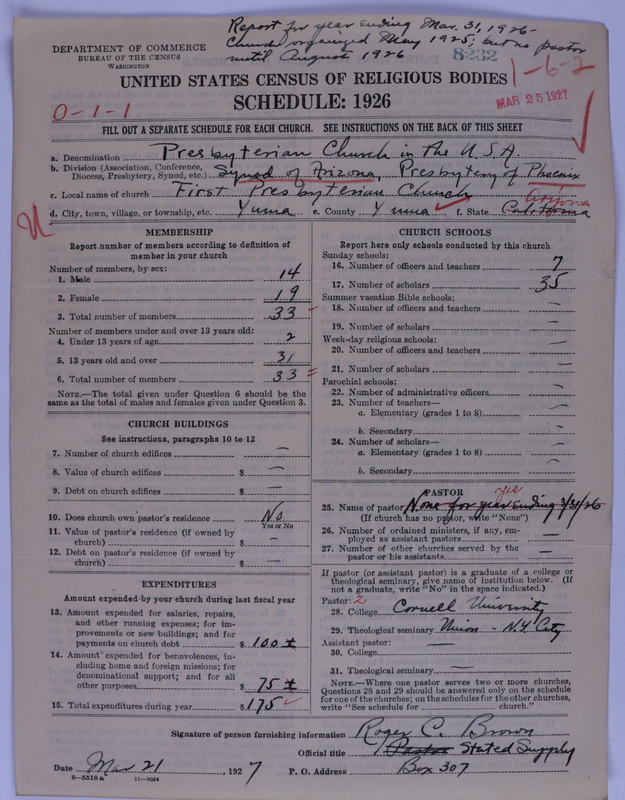 Report for year ending Mar. 31, 1926-
Church organized May 1925, but no pastor
until August 1926
DEPARTMENT OF COMMERCE
BUREAU OF THE CENSUS
WASHINGTON
8232
1-6-2
UNITED STATES CENSUS OF RELIGIOUS BODIES
MAR 25 1927
0-1-1
SCHEDULE: 1926
FILL OUT A SEPARATE SCHEDULE FOR EACH CHURCH. SEE INSTRUCTIONS ON THE BACK OF THIS SHEET
a. Denomination Presbyterian Church in the U.S.A.
b. Division (Association, Conference, Diocese, Presbytery, Synod, etc.) Synod of Arizona, Presbytery of Phoenix
c. Local name of church First Presbyterian Church
Arizona
d. City, town, village, or township, etc. Yuma e. County Yuma f. State California
U
MEMBERSHIP
Report number of members according to definition of
member in your church
Number of members, by sex:
1. Male 14
2. Female 19
3. Total number of members 33
Number of members under and over 13 years old:
4. Under 13 years of age 2
5. 13 years old and over 31
6. Total number of members 33
NOTE.—The total given under Question 6 should be
same as the total of males and females given under Question 3.
CHURCH BUILDINGS
See instructions, paragraphs 10 to 12
7. Number of church edifices —
8. Value of church edifices $ —
9. Debt on church edifices $ —
10. Does church own pastor's residence No
Yes or No
11. Value of pastor's residence (if owned by
church) $ —
12. Debt on pastor's residence (if owned by
church) $ —
EXPENDITURES
Amount expended by your church during last fiscal year
13. Amount expended for salaries, repairs,
and other running expenses; for im-
provements or new buildings; and for
payments on church debt $ 100 ±
14. Amount expended for benevolences, in-
cluding home and foreign missions; for
denominational support; and for all
other purposes $ 75 ±
15. Total expenditures during year $ 175
CHURCH SCHOOLS
Report here only schools conducted by this church
Sunday schools:
16. Number of officers and teachers 7
17. Number of scholars 35
Summer vacation Bible schools:
18. Number of officers and teachers —
19. Number of scholars —
Week-day religious schools:
20. Number of officers and teachers —
21. Number of scholars —
Parochial schools:
22. Number of administrative officers —
23. Number of teachers—
a. Elementary (grades 1 to 8) —
b. Secondary —
24. Number of scholars—
a. Elementary (grades 1 to 8) —
b. Secondary —
PASTOR
yes
25. Name of pastor None for year ending 3/31/26
(If church has no pastor, write "None")
26. Number of ordained ministers, if any, em-
ployed as assistant pastors —
27. Number of other churches served by the
pastor or his assistants —
If pastor (or assistant pastor) is a graduate of a college or
theological seminary, give name of institution below. (If
not a graduate, write "No" in the space indicated.)
Pastor: 2
28. College Cornell University
29. Theological seminary Union - N.Y. City
Assistant pastor:
30. College —
31. Theological seminary —
NOTE.—Where one pastor serves two or more churches,
Questions 28 and 29 should be answered only on the schedule
for one of the churches; on the schedules for the other churches,
write "See schedule for church."
Signature of person furnishing information Roger C. Brown
Official title Pastor Stated Supply
Date Mar 21, 1927 P. O. Address Box 307
8-5518 a 11-9024